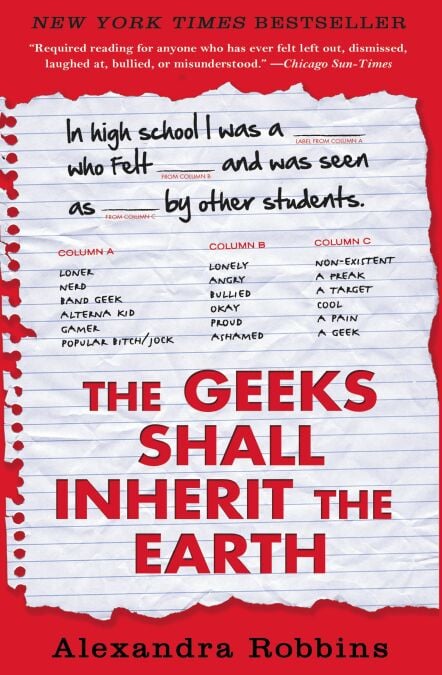 NEW YORK TIMES BESTSELLER
“Required reading for anyone who has ever felt left out, dismissed,
laughed at, bullied, or misunderstood.” —Chicago Sun-Times
In high school I was a ________
LABEL FROM COLUMN A
who felt ______ and was seen
FROM COLUMN B
as ______ by other students.
FROM COLUMN C
COLUMN A
LONER
NERD
BAND GEEK
ALTERNA KID
GAMER
POPULAR BITCH/JOCK
COLUMN B
LONELY
ANGRY
BULLIED
OKAY
PROUD
ASHAMED
COLUMN C
NON-EXISTENT
A FREAK
A TARGET
COOL
A PAIN
A GEEK
THE GEEKS
SHALL
INHERIT THE
EARTH
Alexandra Robbins